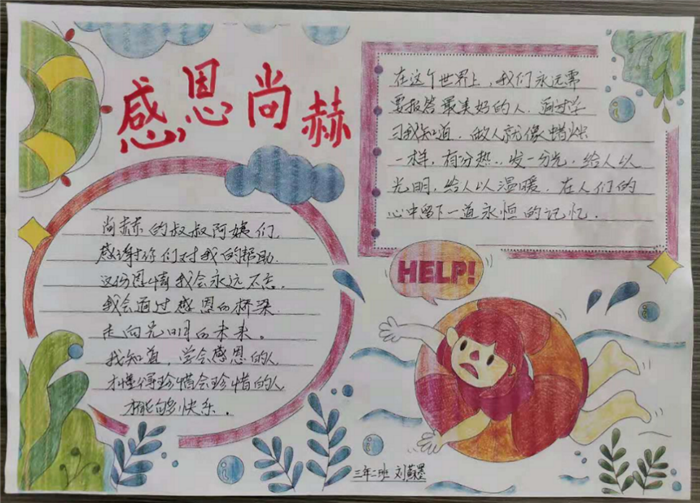 感恩尚赫
尚赫的叔叔阿姨们
感谢你们对我的帮助
这份恩情我会永远不忘.
我会通过感恩的桥梁
走向光明的未来.
我知道 学会感恩的人
才懂得珍惜会珍惜的人
才能够快乐.
在这个世界上,我们永远需
要报答最美好的人.通过学
习我知道.做人就像蜡烛
一样,有分热..发一分光.给人以
光明,给人以温暖.在人们的
心中留下一道永恒的记忆.
HELP!
三年二班 刘